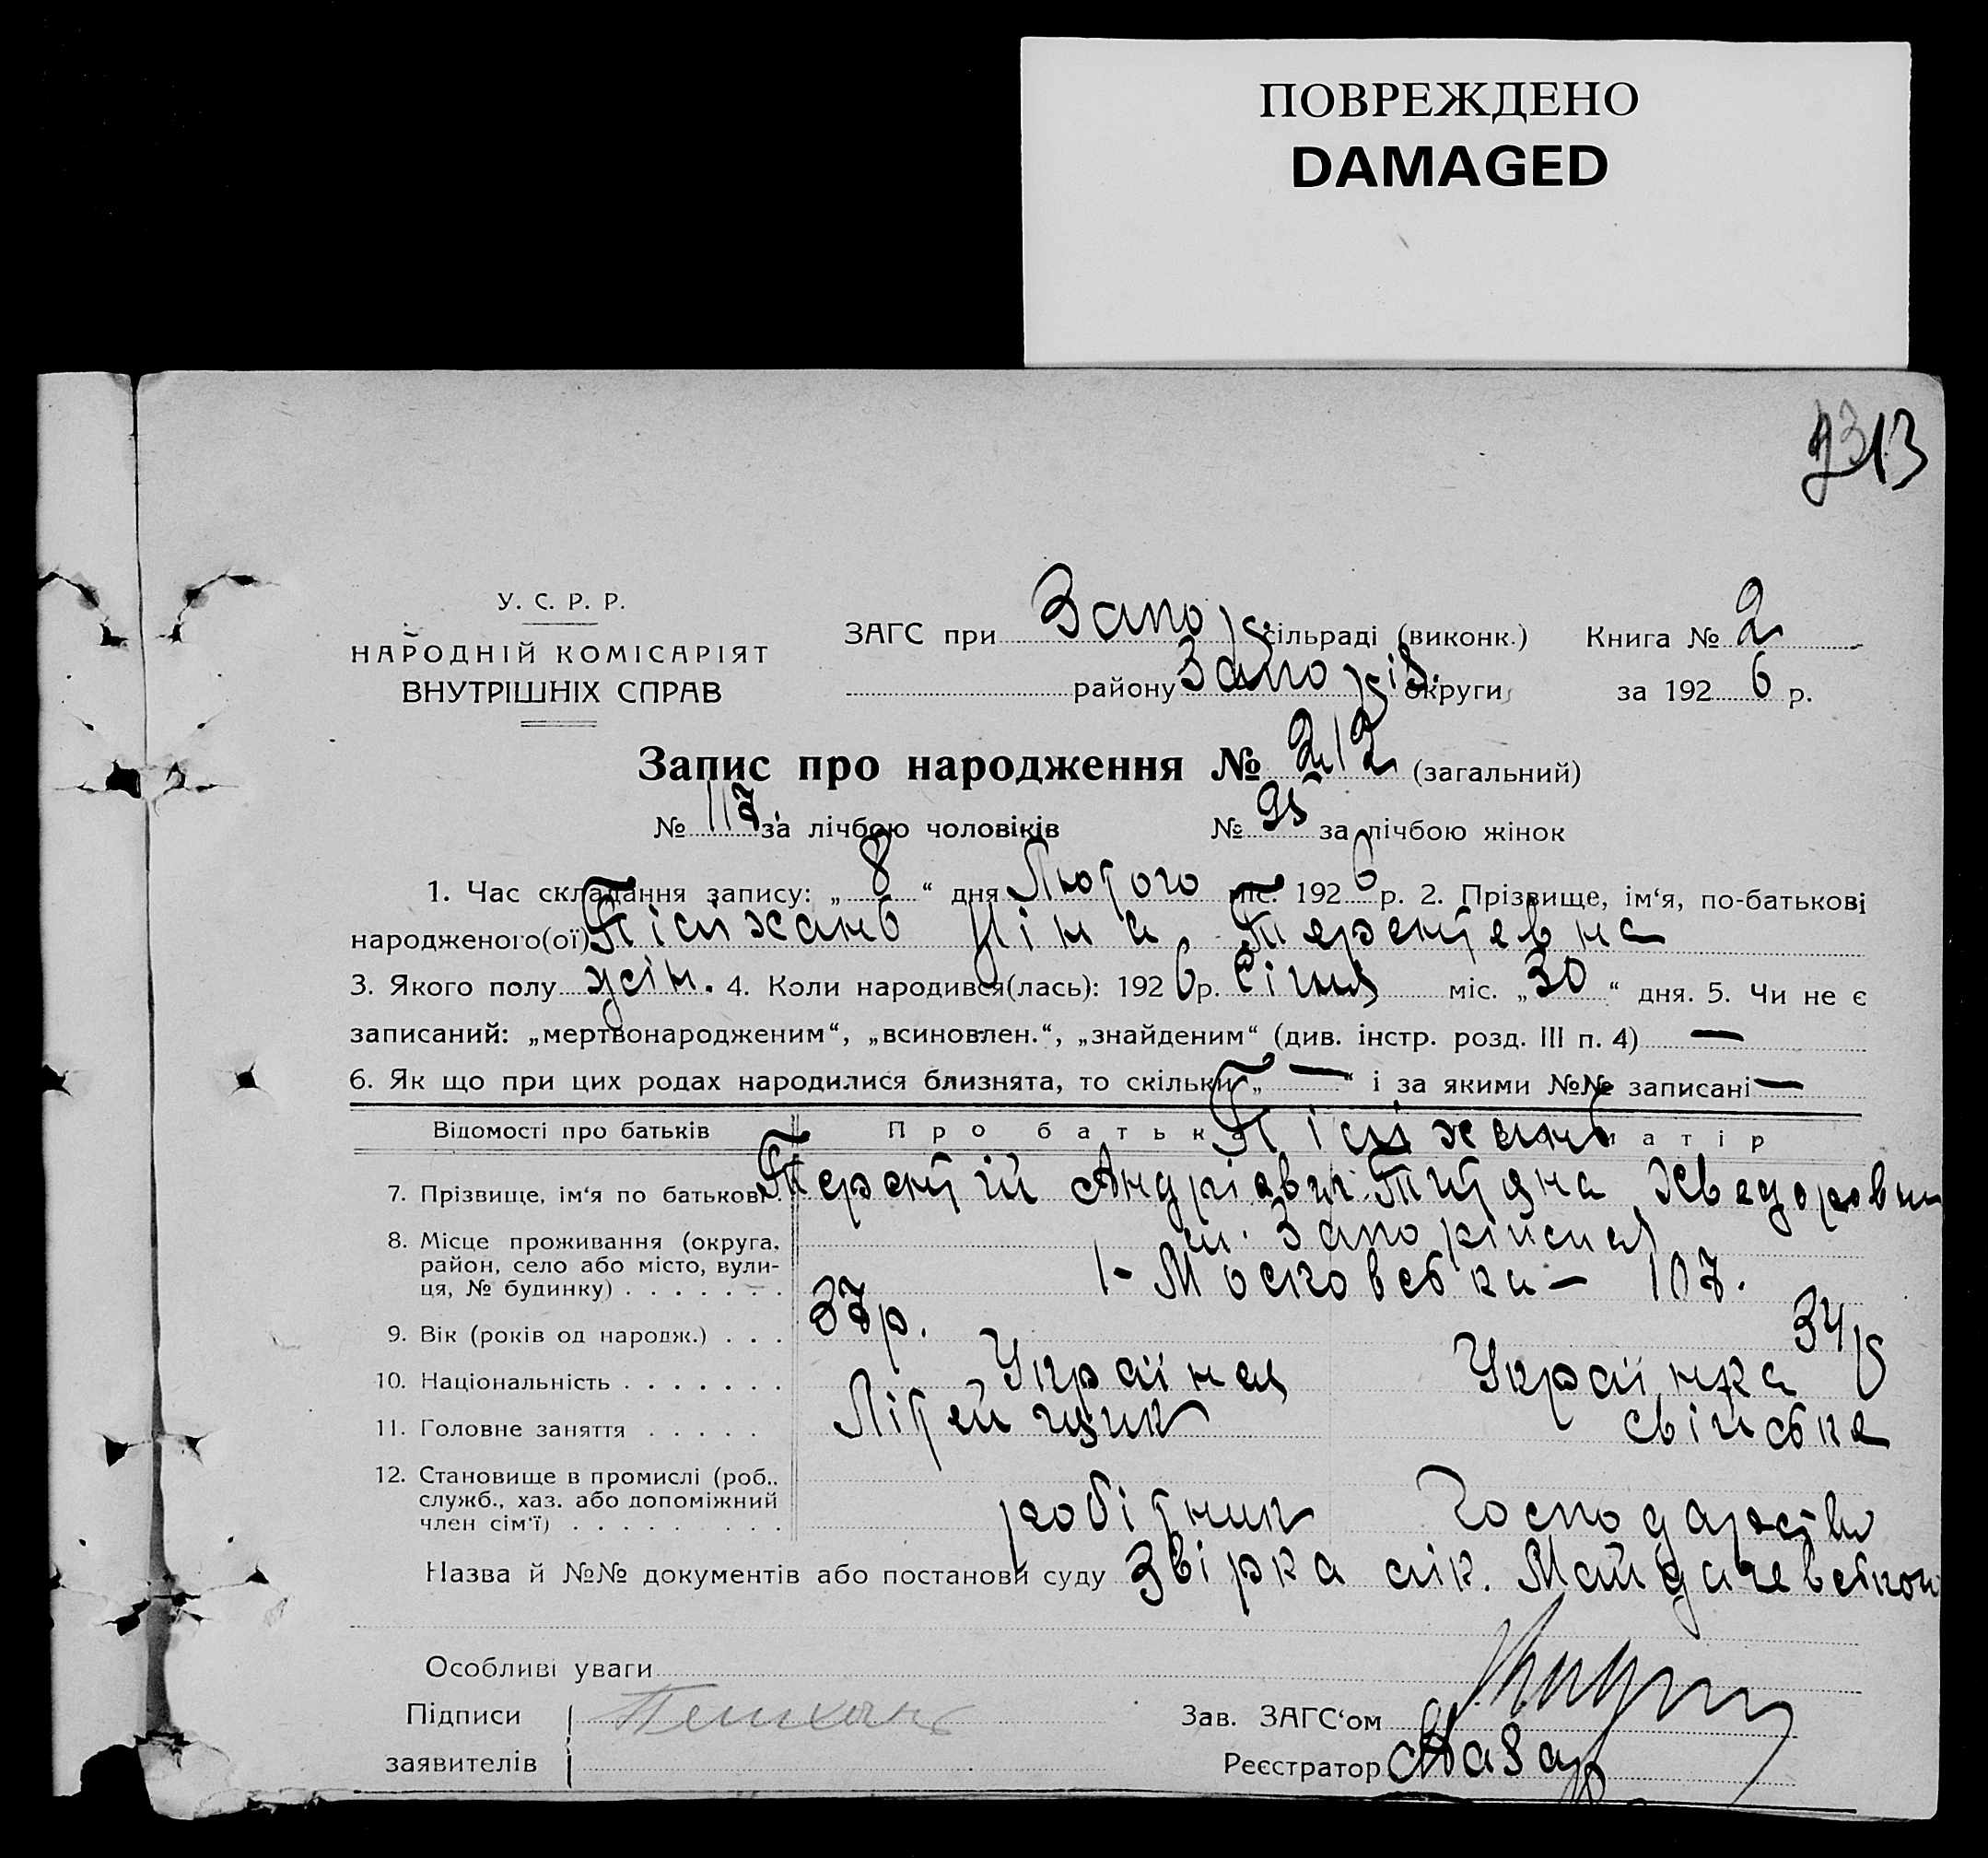 ПОВРЕЖДЕНО
DAMAGED
13
У. С. Р. Р.
НАРОДНІЙ КОМІСАРІЯТ
ВНУТРІШНІХ СПРАВ
ЗАГС при Запоріз. сільраді (виконк.) Книга № 2
району Запоріз. округи за 1926 р.
Запис про народження № 212 (загальний)
№ 117 за лічбою чоловіків № 95 за лічбою жінок
1. Час складання запису: „8“ дня Лютого міс. 1926 р. 2. Прізвище, ім‘я, по-батькові
народженого(ої) Пішхань Ніна Терентевна
3. Якого полу жін. 4. Коли народився(лась): 1926 р. Січня міс. „30“ дня. 5. Чи не є
записаний: „мертвонародженим“, „всиновлен.“, „знайденим“ (див. інстр. розд. III п. 4) —
6. Як що при цих родах народилися близнята, то скільки „—“ і за якими №№ записані —
Відомості про батьків Про батька матір
Пішхань
7. Прізвище, ім‘я по батькові . Терентій Андрієвич Титяна Хведоровн
8. Місце проживання (округа, район, село або місто, вулиця, № будинку) . . . . . . . м. Запоріжжя
1 - Московська — 107.
9. Вік (років од народж.) . . . 37 р. 34 р
10. Національність . . . . . . . Українец Українка
11. Головне заняття . . . . . Літейщик свійське
12. Становище в промислі (роб., служб., хаз. або допоміжний член сім‘ї) . . . . . . . . робітник господарство
Назва й №№ документів або постанови суду Звірка лік. Майдачевської
Особливі уваги
Підписи Пешхань Зав. ЗАГС‘ом
заявителів Реєстратор Назар